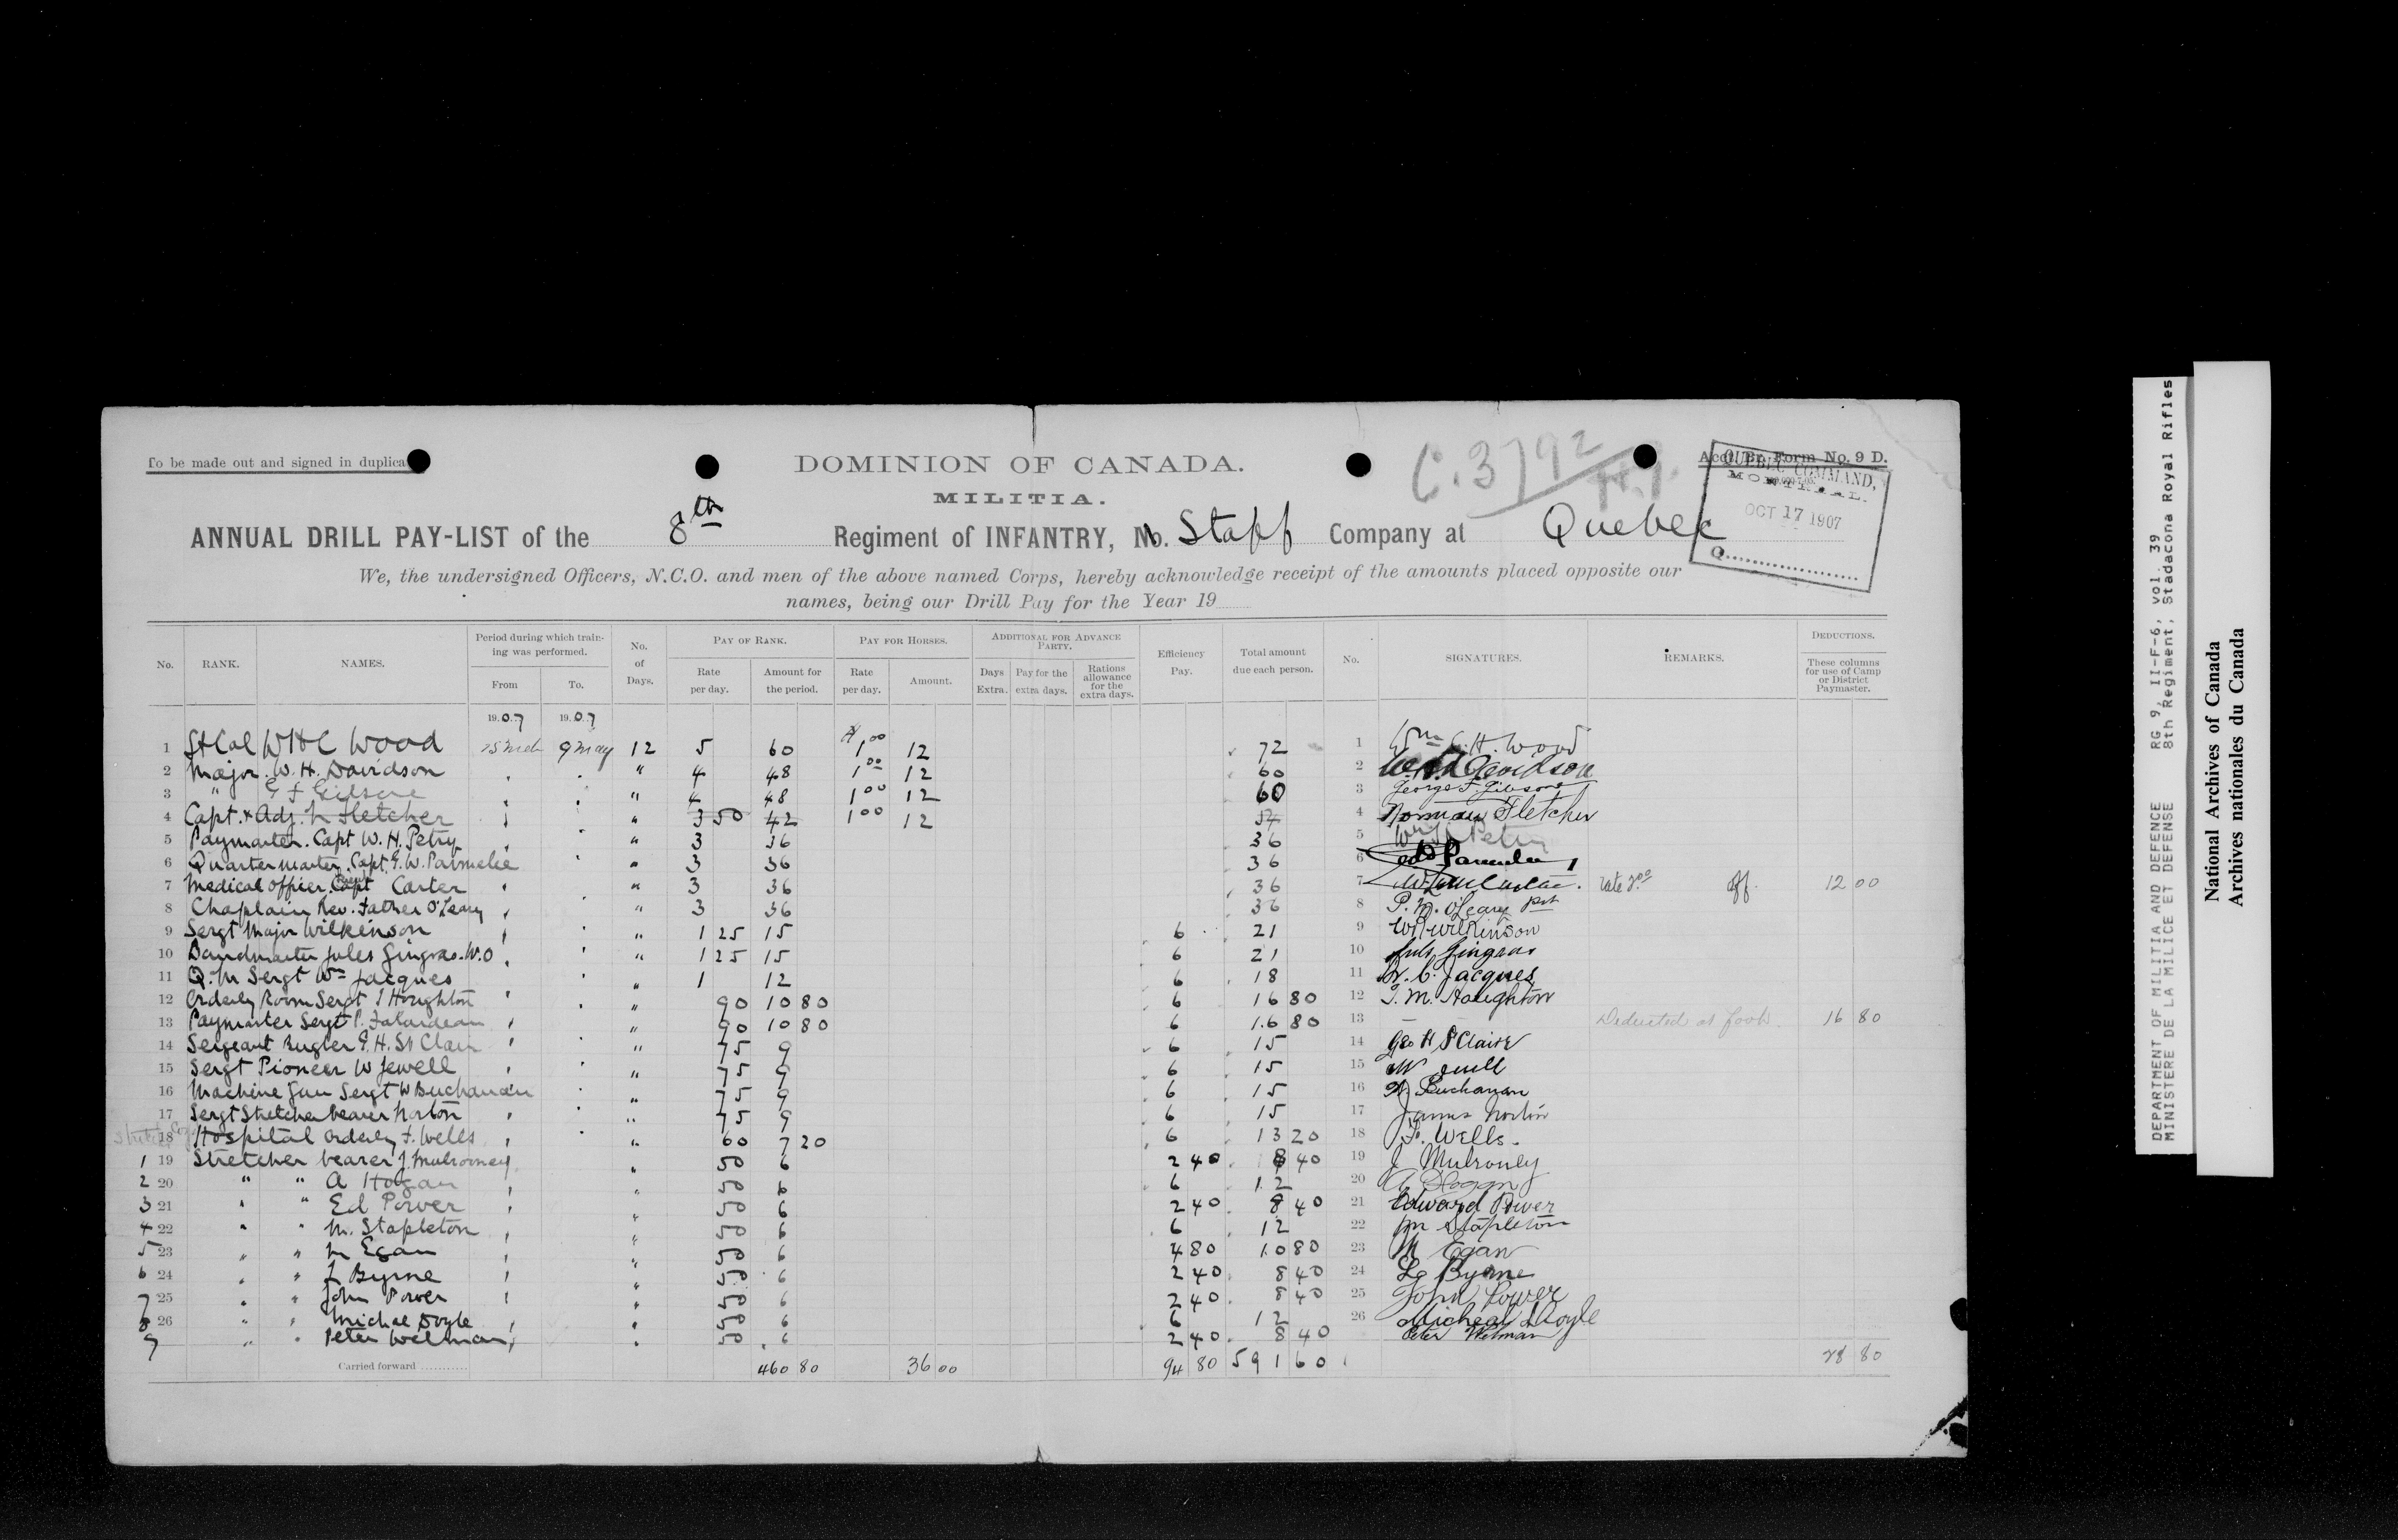 To be made out and signed in duplica
DOMINION OF CANADA.
C.3792
Acct. Br. Form No. 9 D.
MILITIA.
QUEBEC COMMAND,
MONTREAL.
OCT 17 1907
Q
ANNUAL DRILL PAY-LIST of the 8th Regiment of INFANTRY, No. Staff Company at Quebec
We, the undersigned Officers, N.C.O. and men of the above named Corps, hereby acknowledge receipt of the amounts placed opposite our
names, being our Drill Pay for the Year 19
No. RANK. NAMES. Period during which training was performed. From To. No. of Days. PAY OF RANK. Rate per day. Amount for the period. PAY FOR HORSES. Rate per day. Amount. ADDITIONAL FOR ADVANCE PARTY. Days Extra. Pay for the extra days. Rations allowance for the extra days. Efficiency Pay. Total amount due each person. No. SIGNATURES. REMARKS. DEDUCTIONS. These columns for use of Camp or District Paymaster.
19.07 19.07
1 Lt Col W H C Wood 9 May 12 5 60 1 00 12 72 1 Wm C. H. Wood
2 Major W. H. Davidson " 4 48 1 00 12 60 2 Davidson
3 " G F Gibsone " 4 48 1 00 12 60 3 George F. Gibsone
4 Capt. & Adj. N Fletcher " 3 50 42 1 00 12 54 4 Norman Fletcher
5 Paymaster. Capt W. H. Petry " 3 36 36 5 Petry
6 Quartermaster. Capt. G. W. Parmelee " 3 36 36 6 Parmelee
7 Medical officer Capt Carter " 3 36 36 7 rate 2 00 12 00
8 Chaplain Rev. Father O'Leary " 3 36 36 8 P. M. O'Leary pst
9 Sergt Major Wilkinson " 1 25 15 6 21 9 Wilkinson
10 Bandmaster Jules Gingras. W.O " 1 25 15 6 21 10 Jules Gingras
11 Q. M Sergt Wm Jacques " 1 12 6 18 11 W. C. Jacques
12 Orderly Room Sergt J Houghton " 90 10 80 6 16 80 12 J. M. Houghton
13 Paymaster Sergt P. Falardeau " 90 10 80 6 16 80 13 — Deducted at foot. 16 80
14 Sergeant Bugler G. H. St Clair " 75 9 6 15 14 Geo H St Claire
15 Sergt Pioneer W Jewell " 75 9 6 15 15 W Jewell
16 Machine Gun Sergt W Buchanan " 75 9 6 15 16 W Buchanan
17 Sergt Stretcher bearer Norton " 75 9 6 15 17 James Norton
18 Hospital orderly F. Wells " 60 7 20 6 13 20 18 F. Wells.
1 19 Stretcher bearer J. Mulrooney " 50 6 2 40 8 40 19 J Mulrouly
2 20 " " A Hogan " 50 6 6 12 20 A Hogan
3 21 " " Ed Power " 50 6 2 40 8 40 21 Edward Power
4 22 " " M. Stapleton " 50 6 6 12 22 M Stapleton
5 23 " " M Egan " 50 6 4 80 10 80 23 M Egan
6 24 " " L Byrne " 50 6 2 40 8 40 24 Byrne
7 25 " " John Power " 50 6 2 40 8 40 25 John Power
8 26 " " Michael Doyle " 50 6 6 12 26 Micheal Doyle
9 " " Peter Welman " 50 6 2 40 8 40 Peter Welman
Carried forward 460 80 36 00 94 80 591 60 28 80
DEPARTMENT OF MILITIA AND DEFENCE RG 9, II-F-6, vol. 39
MINISTERE DE LA MILICE ET DEFENSE 8th Regiment, Stadacona Royal Rifles
National Archives of Canada
Archives nationales du Canada